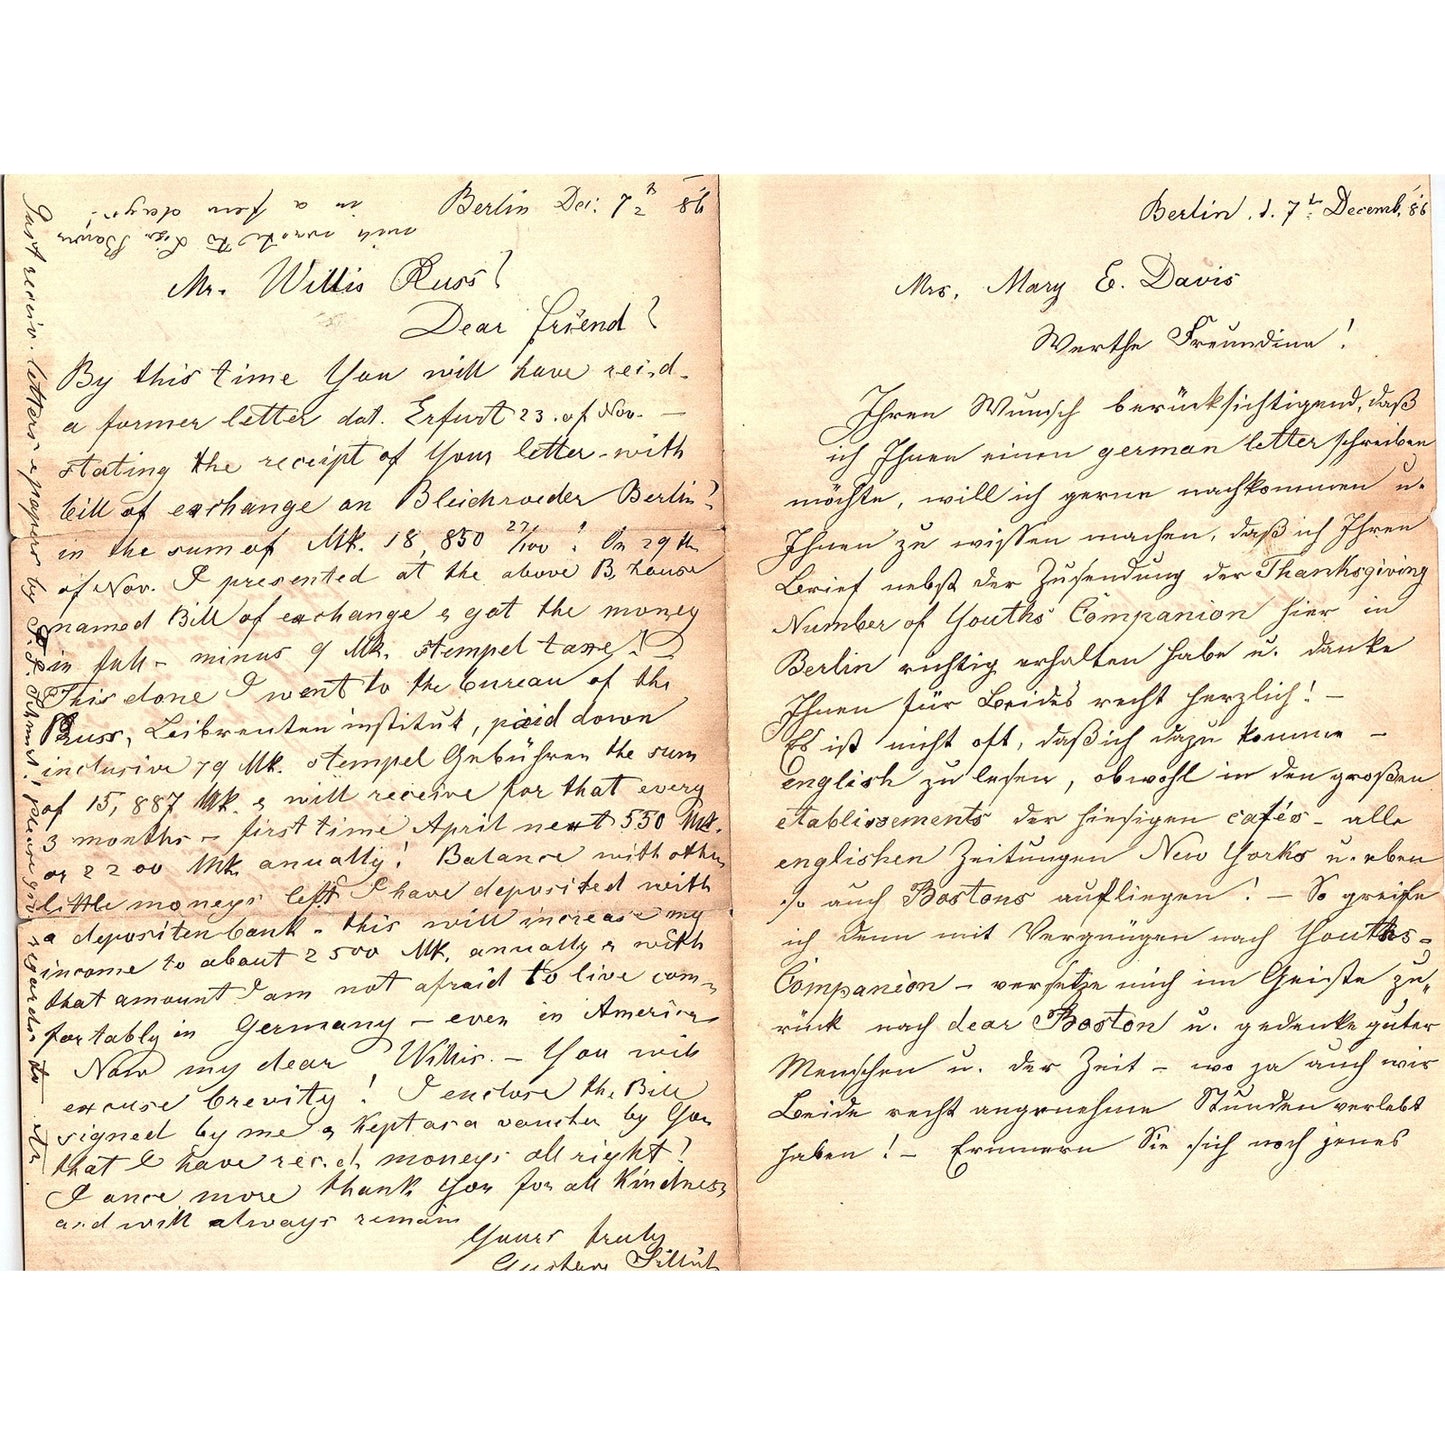 Berlin Dec. 7 86
Mr. Willis Russ!
Dear friend!
By this time You will have rei.d.
a former letter dat. Erfurt 23. of Nov. —
stating the receipt of Your letter - with
bill of exchange on Bleichroeder Berlin!
in the sum of Mk. 18,850 27/100. On 29 th
of Nov. I presented at the above B. house
named Bill of exchange & got the money
in full - minus 9 Mk. stempel taxe!
This done I went to the bureau of the
Preuss. Leibrenten institut, paid down
inclusive 79 Mk. stempel Gebühren the sum
of 15,887 Mk. & will receive for that every
3 months - first time April next 550 Mk.
or 2200 Mk. anually! Balance with other
little moneys left I have deposited with
a depositenbank - this will increase my
income to about 2500 Mk. anually & with
that amount I am not afraid to live com-
fortably in Germany - even in America
Now my dear Willis. - You will
excuse brevity! I enclose the Bill
signed by me & kept as a voucher by You
that I have rec.d. moneys all right!
I once more thank You for all kindness
and will always remain
Yours truly
Gustav
Just receiv. letters & papers by please give regards to
will write to in a few days!
Berlin. d. 7 Decemb. 86
Mrs. Mary E. Davis
Werthe Freundinn!
Ihren Wunsch berücksichtigend, daß
ich Ihnen einen german letter schreiben
möchte, will ich gerne nachkommen u.
Ihnen zu wissen machen, daß ich Ihren
Brief nebst der Zusendung der Thanksgiving
Number of Youths Companion hier in
Berlin richtig erhalten habe u. danke
Ihnen für Beides recht herzlich! —
Es ist nicht oft, daß ich dazu komme —
english zu lesen, obwohl in den großen
etablissements der hiesigen cafés - alle
englischen Zeitungen New Yorks u. eben
so auch Bostons aufliegen! — So greife
ich denn mit Vergnügen nach Youths-
Companion - versetze mich im Geiste zu-
rück nach dear Boston u. gedenke guter
Menschen u. der Zeit - wo ja auch wir
Beide recht angenehme Stunden verlebt
haben! — Erinnern Sie sich noch jenes